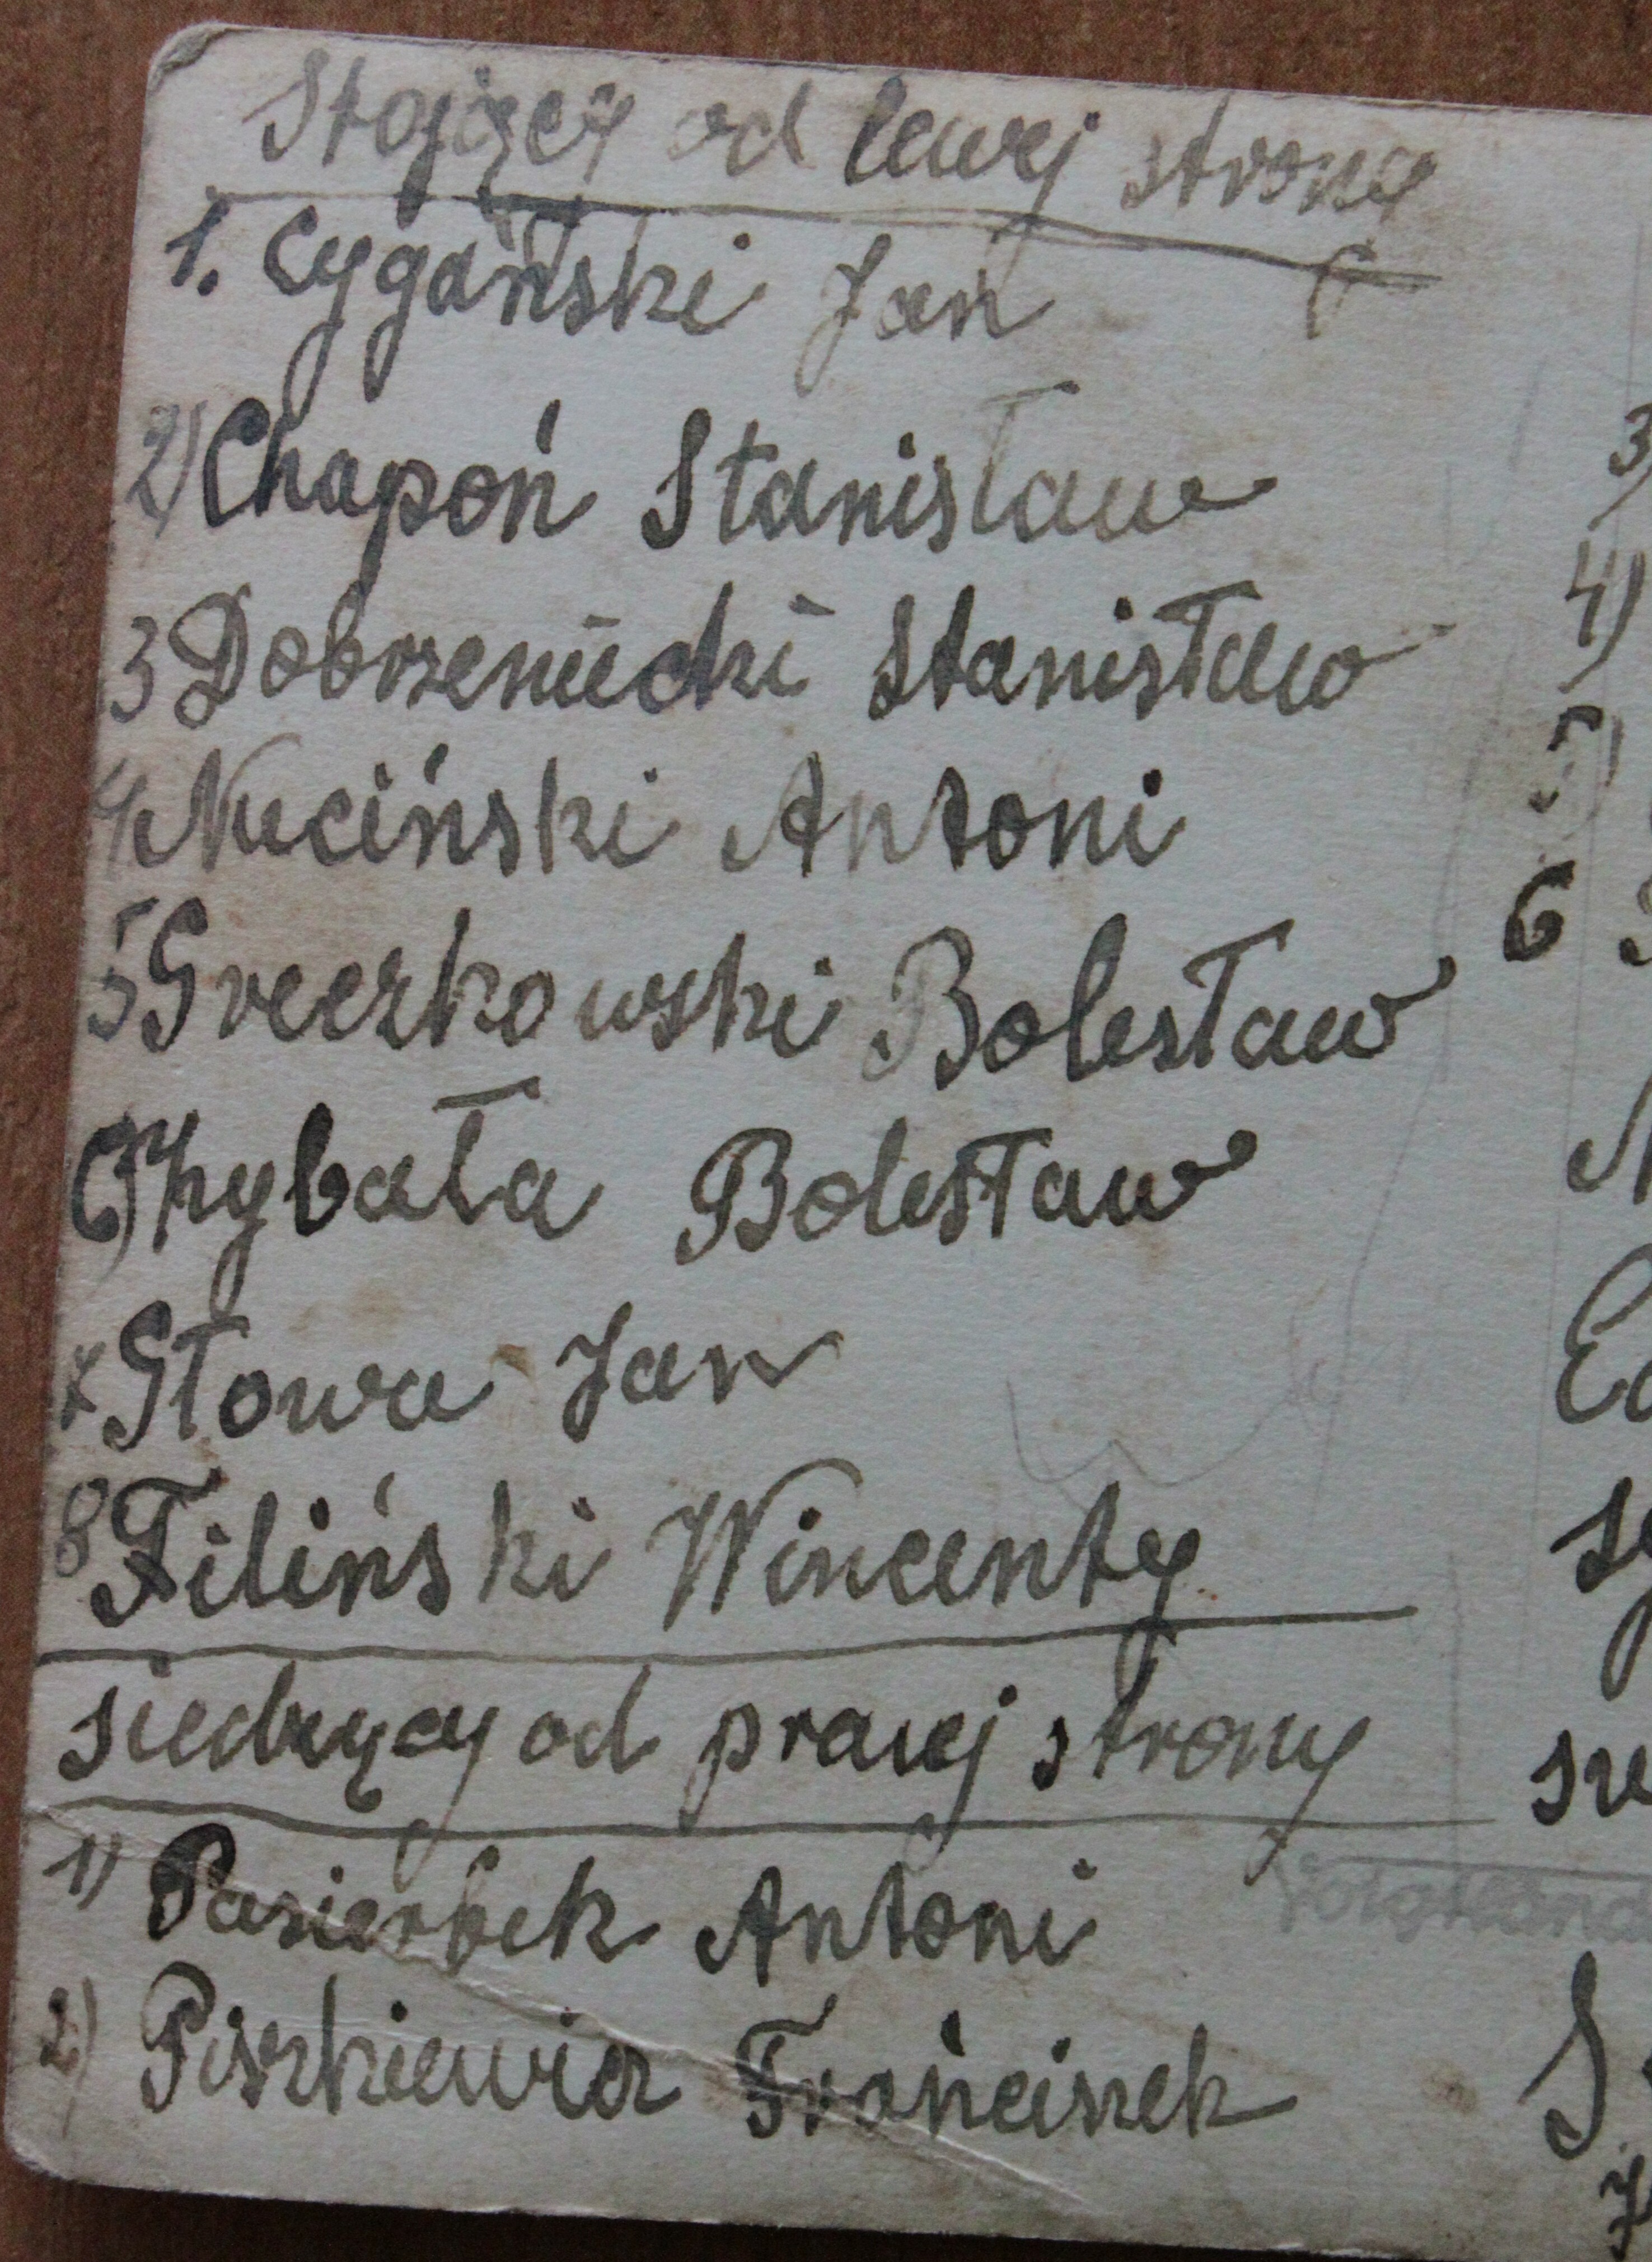 Stojący od lewej strony
1. Cygański Jan
2) Chapoń Stanisław
3 Dobrzeniecki Stanisław
4 Nuciński Antoni
5 Greczkowski Bolesław
6) Chybała Bolesław
7 Głowa Jan
8 Filiński Wincenty
siedzący od prawej strony
1) Pasierbek Antoni
2) Piszkiewicz Franciszek
3)
4)
5)
6